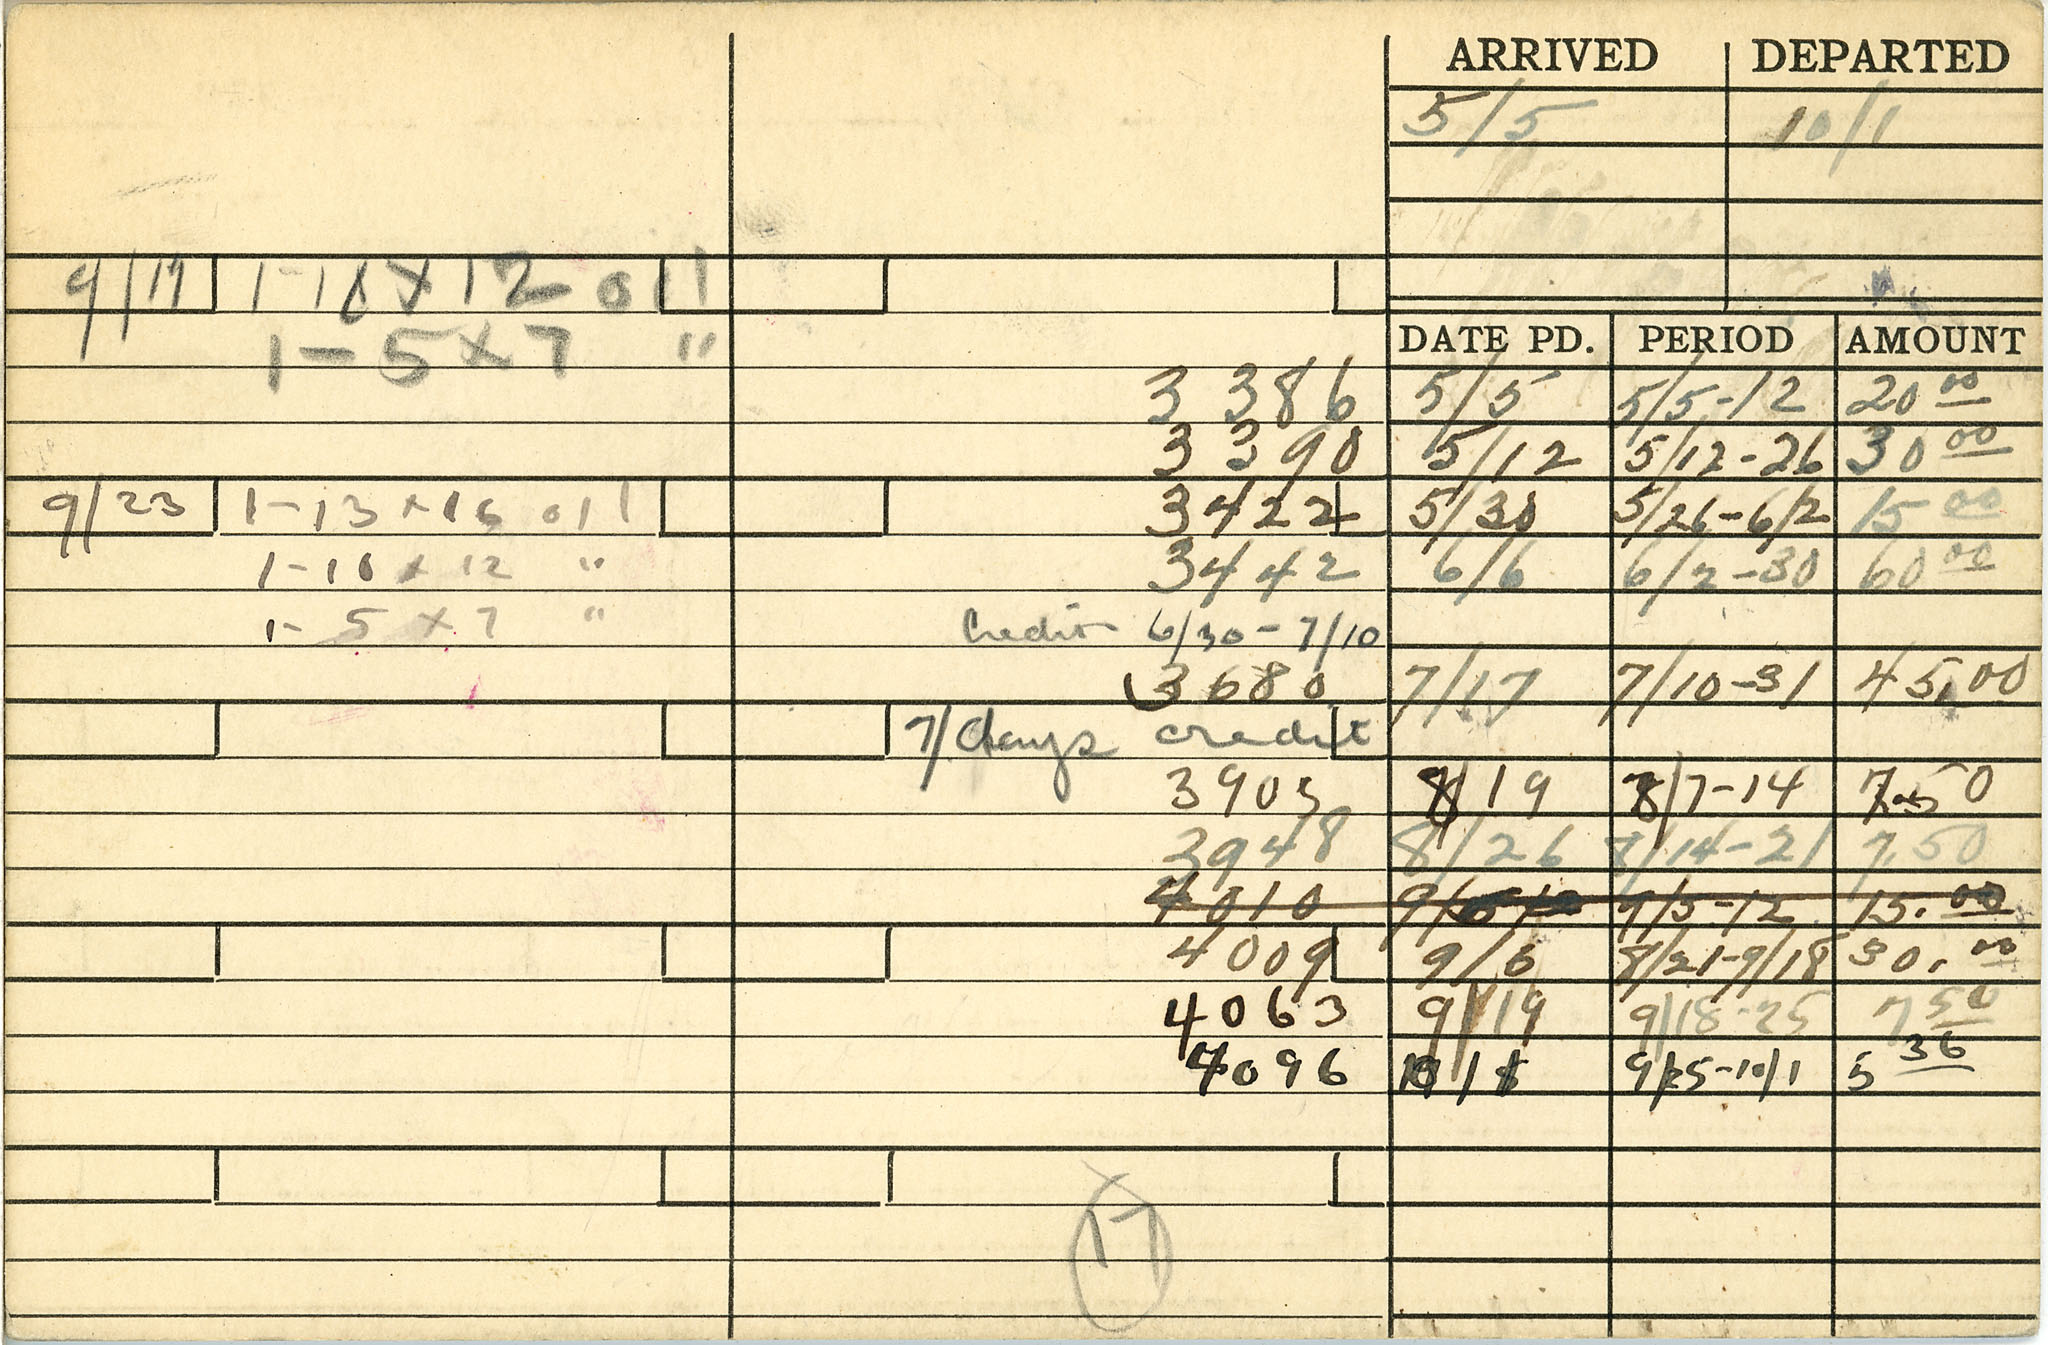 ARRIVED DEPARTED
5/5 10/1
9/17 1-10x12 oil
1-5x7 "
DATE PD. PERIOD AMOUNT
3386 5/5 5/5-12 20 00
3390 5/12 5/12-26 30 00
9/23 1-13x16 oil 3422 5/30 5/26-6/2 15 00
1-10x12 " 3442 6/6 6/2-30 60 00
1-5x7 " Credit 6/30-7/10
3680 7/17 7/10-31 45.00
7/days credit
3905 8/19 8/7-14 7.50
3948 8/26 8/14-21 7.50
4010 9/ 9/5-12 15.00
4009 9/6 8/21-9/18 30.00
4063 9/19 9/18-25 7 50
4096 9/25-10/1 5 36
17